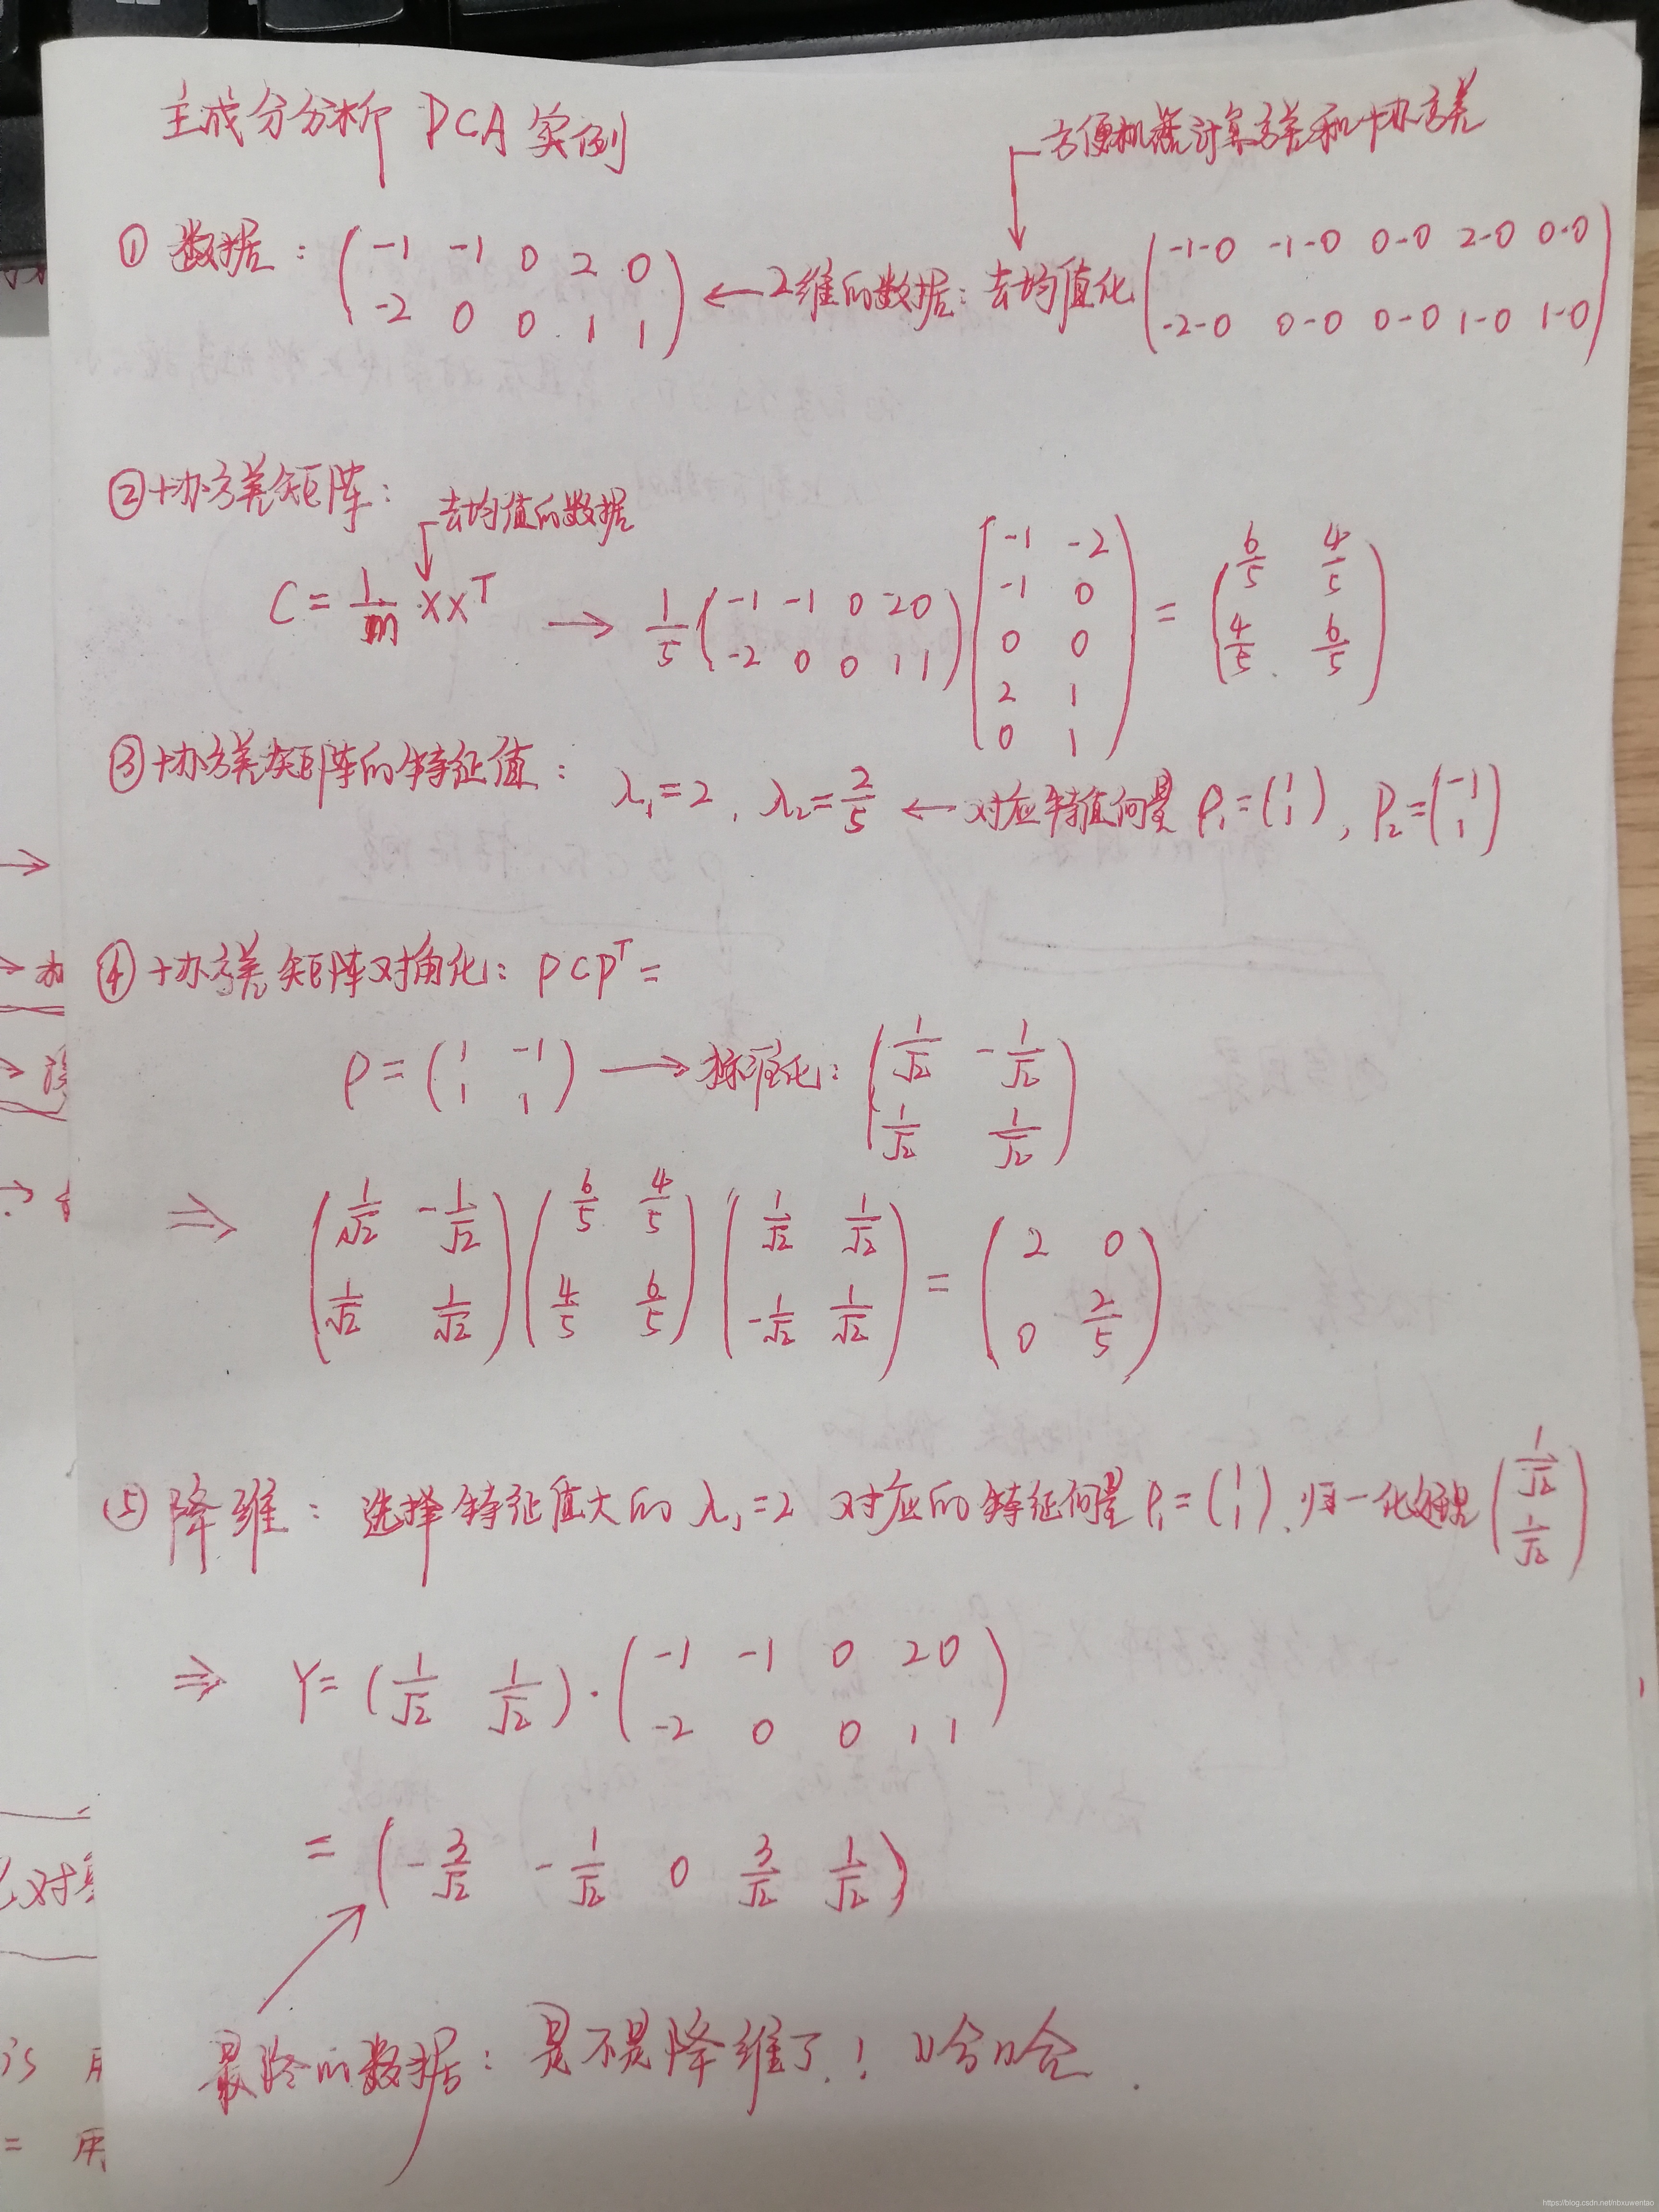 主成分分析 PCA 实例
方便机器计算方差和协方差
① 数据: ( -1 -1 0 2 0 ; -2 0 0 1 1 ) ← 2维的数据: 去均值化 ( -1-0 -1-0 0-0 2-0 0-0 ; -2-0 0-0 0-0 1-0 1-0 )
② 协方差矩阵:
去均值的数据
C = 1/m XXᵀ → 1/5 ( -1 -1 0 2 0 ; -2 0 0 1 1 ) ( -1 -2 ; -1 0 ; 0 0 ; 2 1 ; 0 1 ) = ( 6/5 4/5 ; 4/5 6/5 )
③ 协方差矩阵的特征值: λ₁=2, λ₂=2/5 ← 对应特值向量 P₁=(1 ; 1), P₂=(-1 ; 1)
④ 协方差矩阵对角化: PCPᵀ =
P = ( 1 -1 ; 1 1 ) → 标准化: ( 1/√2 -1/√2 ; 1/√2 1/√2 )
⇒ ( 1/√2 -1/√2 ; 1/√2 1/√2 ) ( 6/5 4/5 ; 4/5 6/5 ) ( 1/√2 1/√2 ; -1/√2 1/√2 ) = ( 2 0 ; 0 2/5 )
⑤ 降维: 选择特征值大的 λ₁=2 对应的特征向量 P₁=(1 ; 1), 归一化处理 ( 1/√2 ; 1/√2 )
⇒ Y = ( 1/√2 1/√2 ) · ( -1 -1 0 2 0 ; -2 0 0 1 1 )
= ( -3/√2 -1/√2 0 3/√2 1/√2 )
最终的数据: 是不是降维了! 哈哈.
https://blog.csdn.net/nbxuwentao